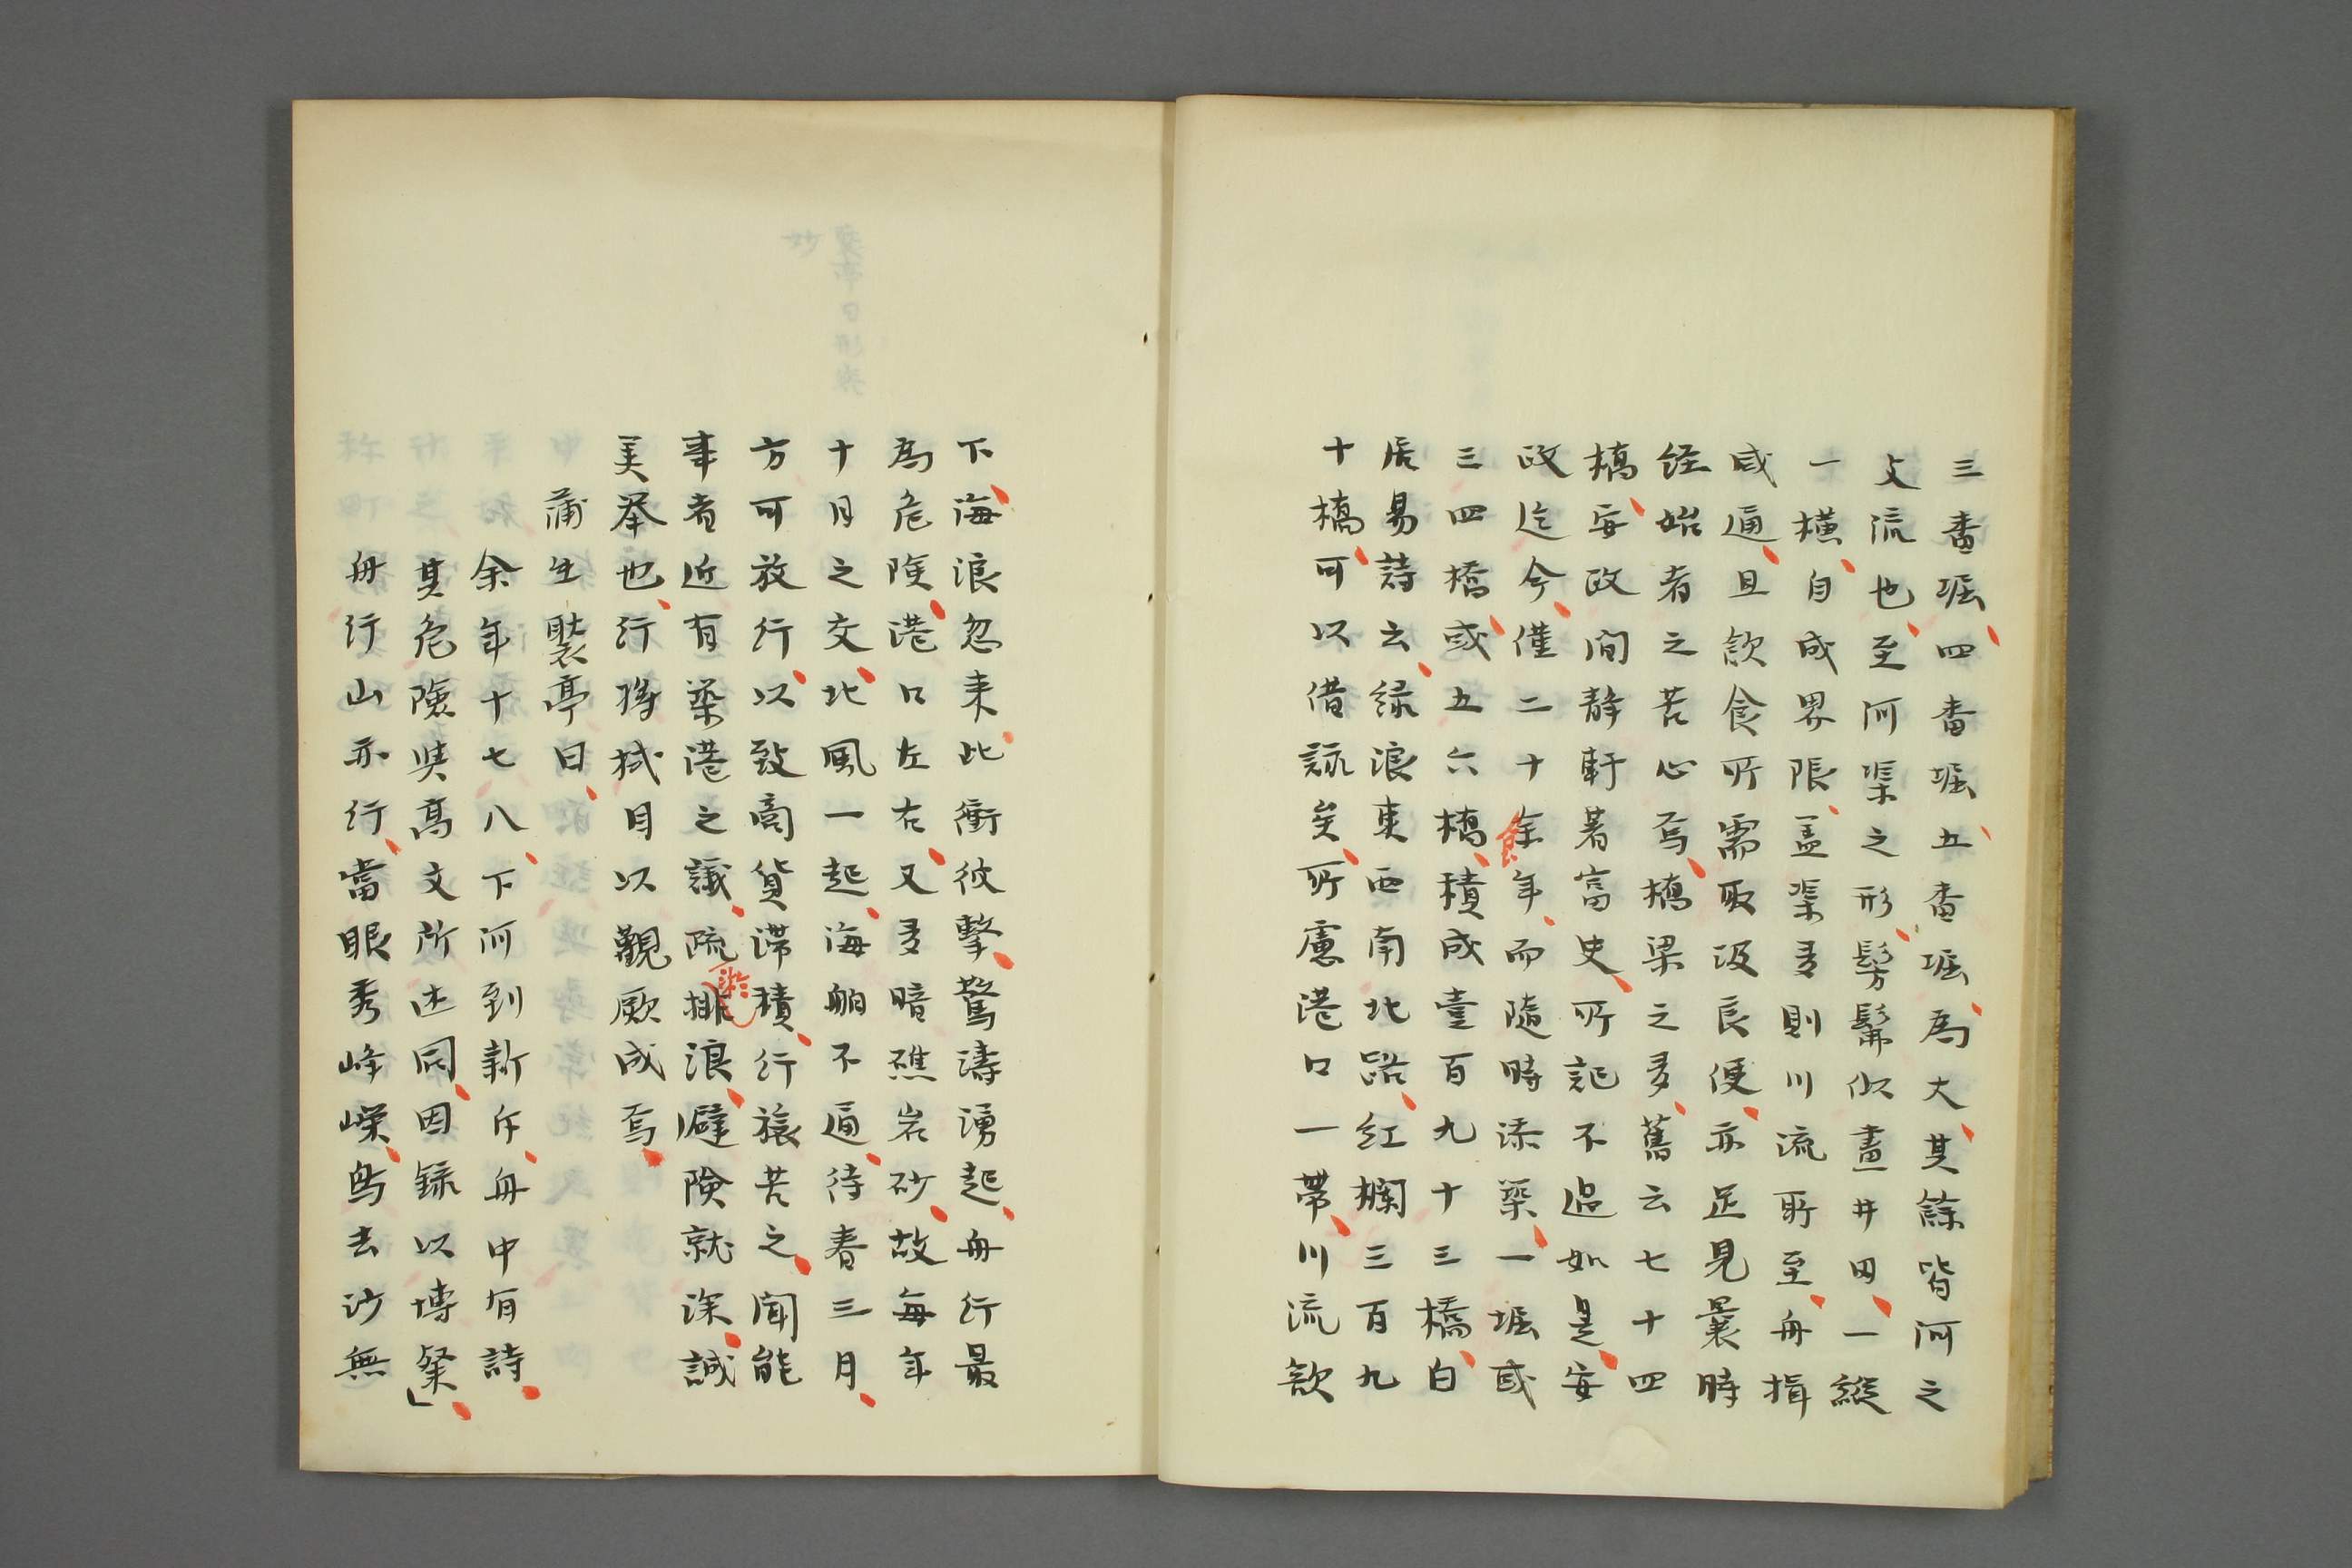 三番堀四番堀五番堀為大其餘皆河之
支流也至河渠之形髣髴似畫井田一縱
一橫自成界限盖渠多則川流所至舟揖
咸通且飲食所需取汲良便亦足見曩時
経始者之苦心焉橋梁之多舊云七十四
橋安政間静軒著富史所記不過如是安
政迄今僅二十余年而隨時添築一堀或
三四橋或五六橋積成壹百九十三橋白
居易詩云緑浪東西南北路紅欄三百九
十橋可以借詠矣所慮港口一帯川流欲
下海浪忽来此衝彼擊驚濤湧起舟行最
為危険港口左右又多暗礁岩砂故毎年
十月之交北風一起海舶不通待春三月
方可放行以致商貨滞積行旅苦之聞能
事者近有築港之議疏排浪避険就深誠
美挙也行将拭目以觀厥成焉
蒲生褧亭曰
余年十七八下河到新斥舟中有詩
其危險與髙文所述同因録以博粲」
舟行山亦行當眼秀峰嶸鳥去沙無